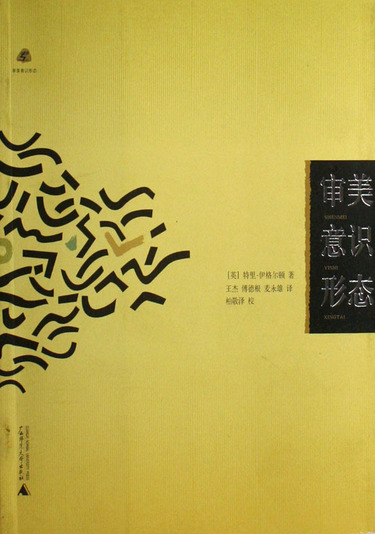 审美
SHENMEI
意识
YISHI
形态
XINGTAI
[英] 特里·伊格尔顿 著
王杰 傅德根 麦永雄 译
柏敬泽 校
广西师范大学出版社